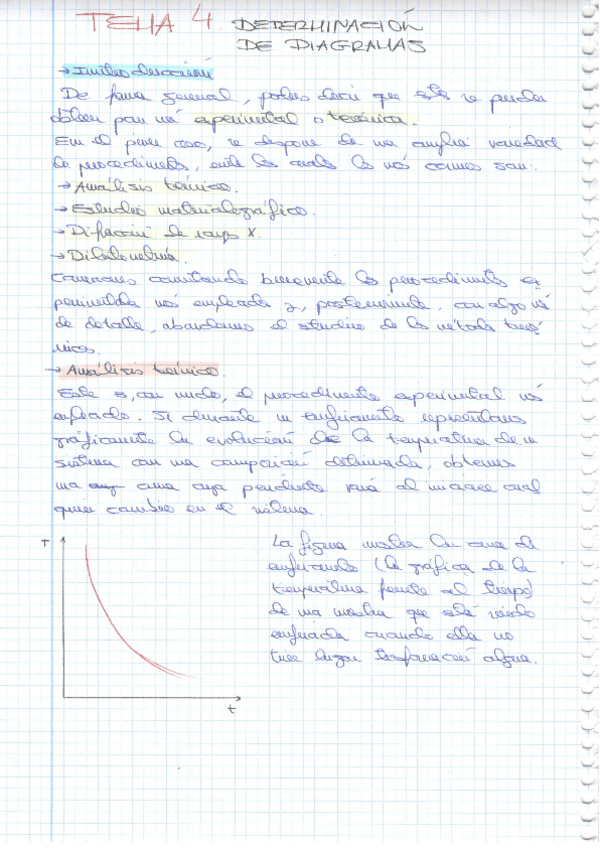 TEMA 4. DETERMINACIÓN
DE DIAGRAMAS
→ Introducción
De forma general, podemos decir que este se puede
obtener por vía experimental o teórica.
En el primer caso, se dispone de una amplia variedad
de procedimientos, entre los cuales los más comunes son:
→ Análisis térmico.
→ Estudios materialográfico.
→ Difracción de rayos X.
→ Dilatometría.
Comenzaremos comentando brevemente los procedimientos
experimentales más empleados y, posteriormente, con algo más
de detalle, abordaremos el estudio de los métodos
→ Análisis térmico.
Este es, con mucho, el procedimiento experimental más
empleado. Si durante un enfriamiento representamos
gráficamente la evolución de la temperatura de un
sistema con una composición determinada, obtenemos
una curva cuya pendiente variará al iniciarse cual
quier cambio en el sistema.
T
t
La figura muestra la curva de
enfriamiento (la gráfica de la
temperatura frente al tiempo)
de una muestra que está siendo
enfriada cuando ella no
tiene lugar transformación alguna.